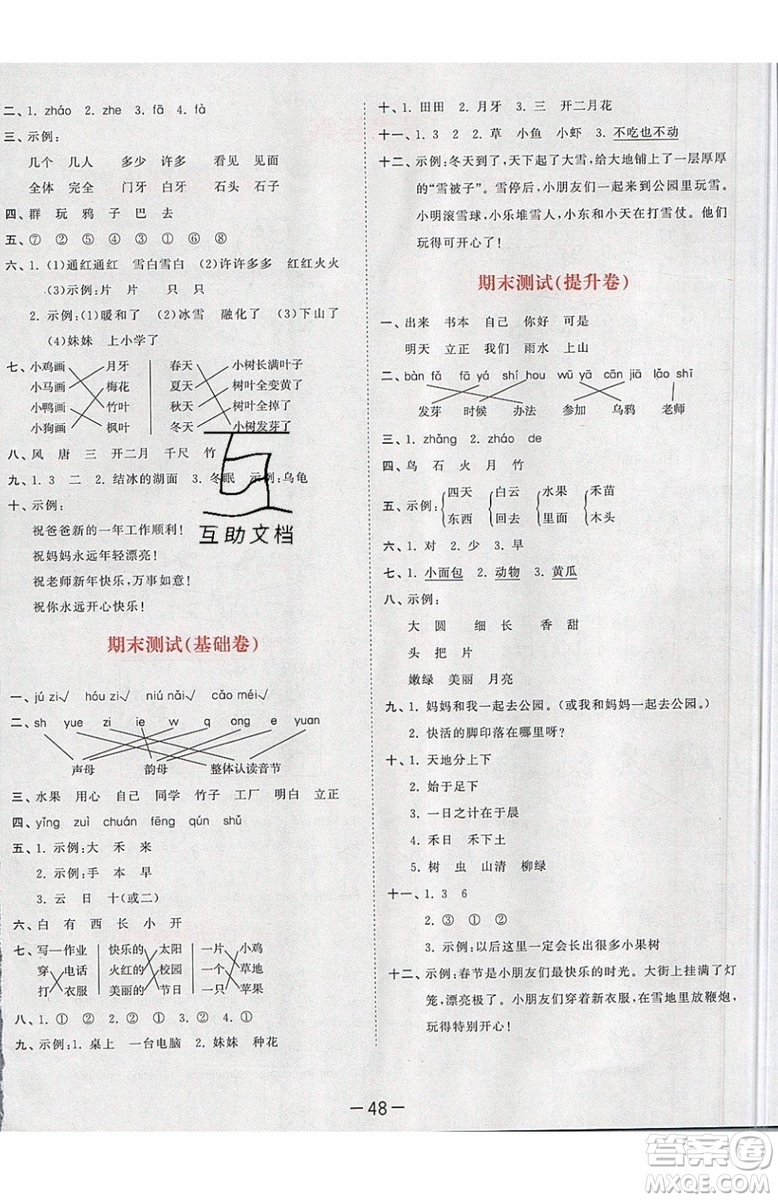 二、1. zháo 2. zhe 3. fā 4. fà
三、示例：
几个 几人 多少 许多 看见 见面
全体 完全 门牙 白牙 石头 石子
四、群 玩 鸦 子 巴 去
五、⑦ ② ④ ① ③ ⑤ ⑥ ⑧
六、1. (1)通红通红 雪白雪白 (2)许许多多 红红火火
(3)示例：片 片 只 只
2. 示例：(1)暖和了 (2)冰雪 融化了 (3)下山了
(4)妹妹 上小学了
七、小鸡画 月牙 春天 小树长满叶子
小马画 梅花 夏天 树叶全变黄了
小鸭画 竹叶 秋天 树叶全掉了
小狗画 枫叶 冬天 小树发芽了
八、风 唐 三 开 二月 千尺 竹
九、1. 3 二 2. 结冰的湖面 3. 冬眠 示例：乌龟
十、示例：
祝爸爸新的一年工作顺利！
祝妈妈永远年轻漂亮！
祝老师新年快乐，万事如意！
祝你永远开心快乐！
互助文档
期末测试(基础卷)
一、jú zi√ hóu zi√ niú nǎi√ cǎo méi√
二、sh yue zi ie w q ong e yuan
声母 韵母 整体认读音节
三、水果 用心 自己 同学 竹子 工厂 明白 立正
四、yǐng zuì chuán fēng qún shǔ
五、1. 示例：大 禾 来
2. 示例：手 本 早
3. 云 日 十(或二)
六、白 有 西 长 小 开
七、写 作业 快乐的 太阳 一片 小鸡
穿 电话 火红的 校园 一个 草地
打 衣服 美丽的 节日 一只 苹果
八、1. ① ② 2. ② ① 3. ② ① 4. ① ②
九、示例：1. 桌上 一台电脑 2. 妹妹 种花
十、1. 田田 2. 月牙 3. 三 开二月花
十一、1. 3 2 2. 草 小鱼 小虾 3. 不吃也不动
十二、示例：冬天到了，天下起了大雪，给大地铺上了一层厚厚
的“雪被子”。雪停后，小朋友们来到公园里玩雪。
小明滚雪球，小乐堆雪人，小东和小天在打雪仗。他们
玩得可开心了！
期末测试(提升卷)
一、出来 书本 自己 你好 可是
明天 立正 我们 雨水 上山
二、bàn fǎ fā yá shí hou wū yā cān jiā lǎo shī
发芽 时候 办法 参加 乌鸦 老师
三、1. zhǎng 2. zháo de
四、鸟 石 火 月 竹
五、示例：四天 白云 水果 禾苗
东西 回去 里面 木头
六、1. 对 2. 少 3. 早
七、1. 小面包 2. 动物 3. 黄瓜
八、示例：
大 圆 细 长 香 甜
头 把 片
嫩绿 美丽 月亮
九、1. 妈妈和我一起去公园。(或我和妈妈一起去公园。)
2. 快活的脚印落在哪里呀？
十、1. 天地分上下
2. 始于足下
3. 一日之计在于晨
4. 禾日 禾下土
5. 树 虫 山清 柳绿
十一、1. 3 6
2. ③ ① ②
3. 示例：以后这里一定会长出很多小果树
十二、示例：春节是小朋友们最快乐的时光。大街上挂满了灯
笼，漂亮极了。小朋友们穿着新衣服，在雪地里放鞭炮，
玩得特别开心！
— 48 —
答案圈
MXQE.COM